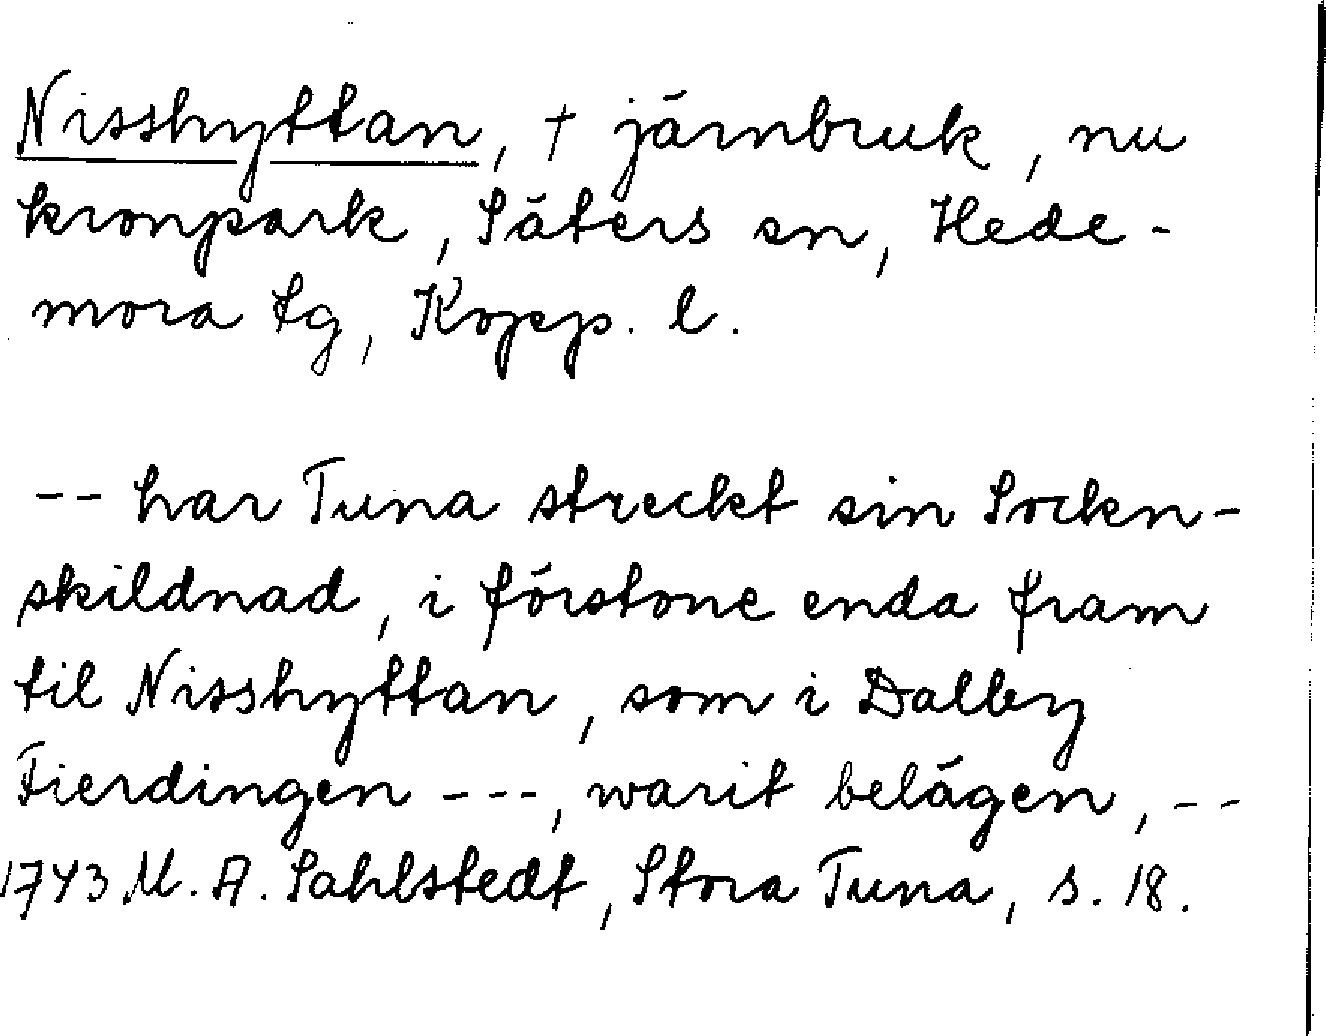 Nisshyttan, † järnbruk, nu
kronpark, Säters sn, Hede-
mora tg, Kopp. l.
-- har Tuna streckt sin Sockn-
skildnad, i förstone enda fram
til Nisshyttan, som i Dalby
Fierdingen ---, warit belägen, --
1743 M. A. Sahlstedt, Stora Tuna, s. 18.